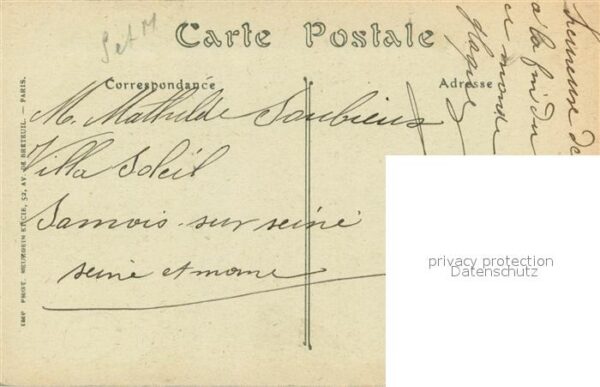 S et M
Carte Postale
Correspondance
Adresse
M. Mathilde Saubiens
Villa Soleil
Samois-sur-seine
seine et marne
heureuse de
à la fin du
ce monde
IMP PHOT. NEURDEIN ET CIE, 52, AV. DE BRETEUIL. — PARIS.
privacy protection
Datenschutz